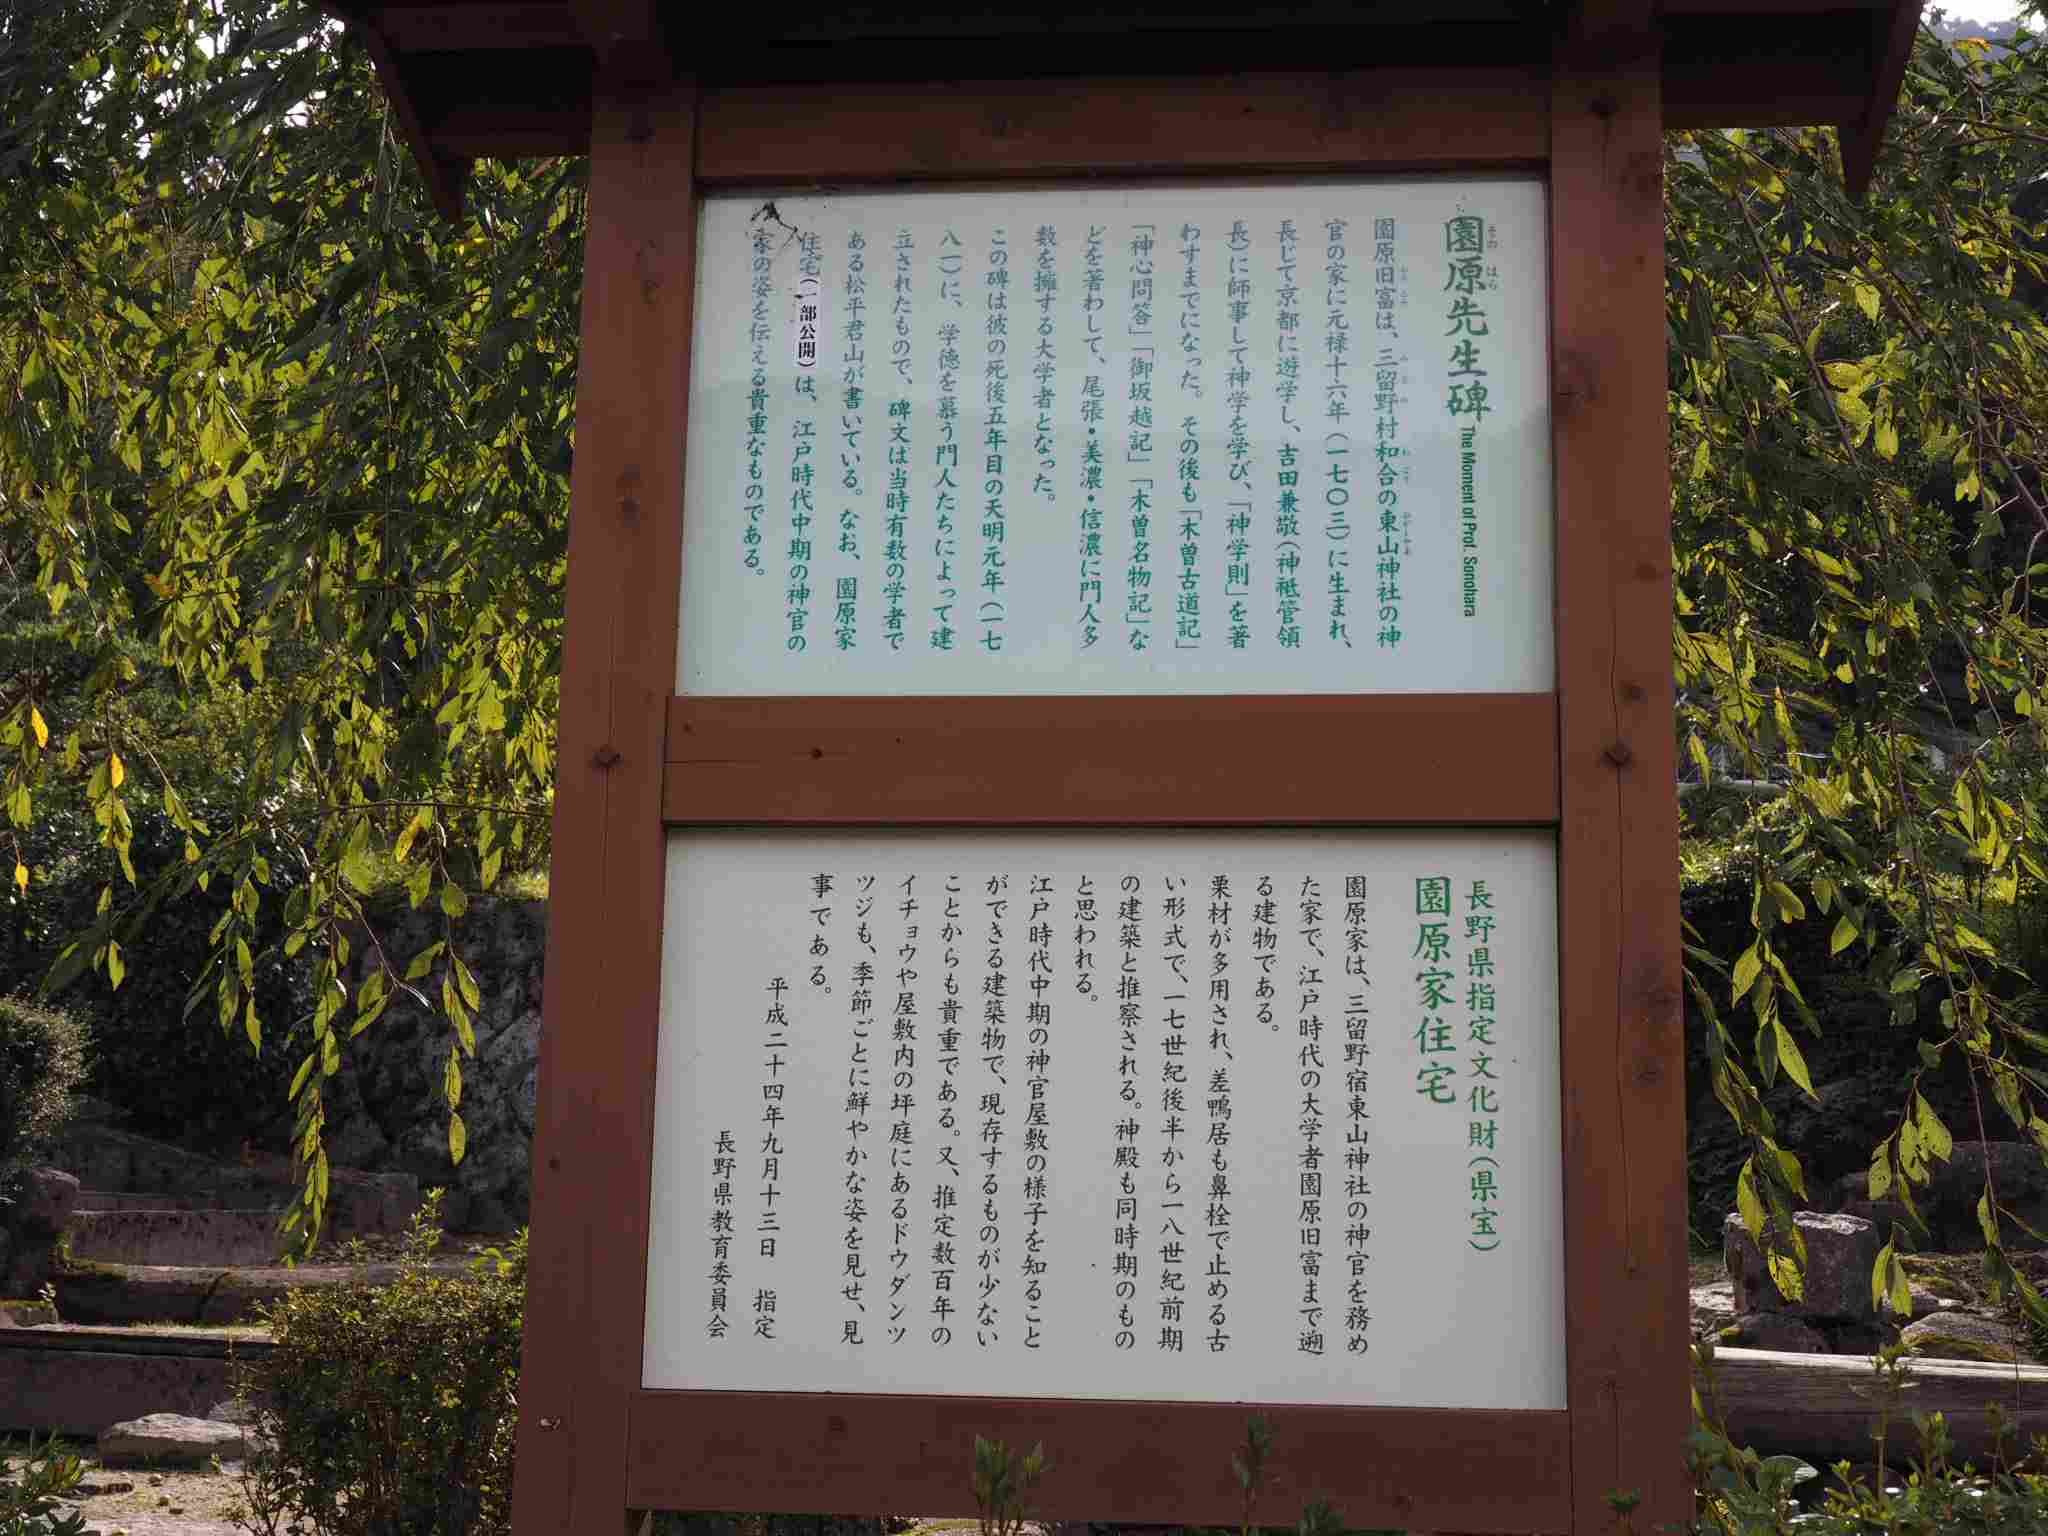 園原先生碑 The Moment of Prof. Sonohara
園原旧富は、三留野村和合の東山神社の神
官の家に元禄十六年(一七〇三)に生まれ、
長じて京都に遊学し、吉田兼敬(神祇管領
長)に師事して神学を学び、「神学則」を著
わすまでになった。その後も「木曽古道記」
「神心問答」「御坂越記」「木曽名物記」な
どを著わして、尾張・美濃・信濃に門人多
数を擁する大学者となった。
この碑は彼の死後五年目の天明元年(一七
八一)に、学徳を慕う門人たちによって建
立されたもので、碑文は当時有数の学者で
ある松平君山が書いている。なお、園原家
住宅(一部公開)は、江戸時代中期の神官の
家の姿を伝える貴重なものである。
長野県指定文化財(県宝)
園原家住宅
園原家は、三留野宿東山神社の神官を務め
た家で、江戸時代の大学者園原旧富まで遡
る建物である。
栗材が多用され、差鴨居も鼻栓で止める古
い形式で、一七世紀後半から一八世紀前期
の建築と推察される。神殿も同時期のもの
と思われる。
江戸時代中期の神官屋敷の様子を知ること
ができる建築物で、現存するものが少ない
ことからも貴重である。又、推定数百年の
イチョウや屋敷内の坪庭にあるドウダンツ
ツジも、季節ごとに鮮やかな姿を見せ、見
事である。
平成二十四年九月十三日 指定
長野県教育委員会